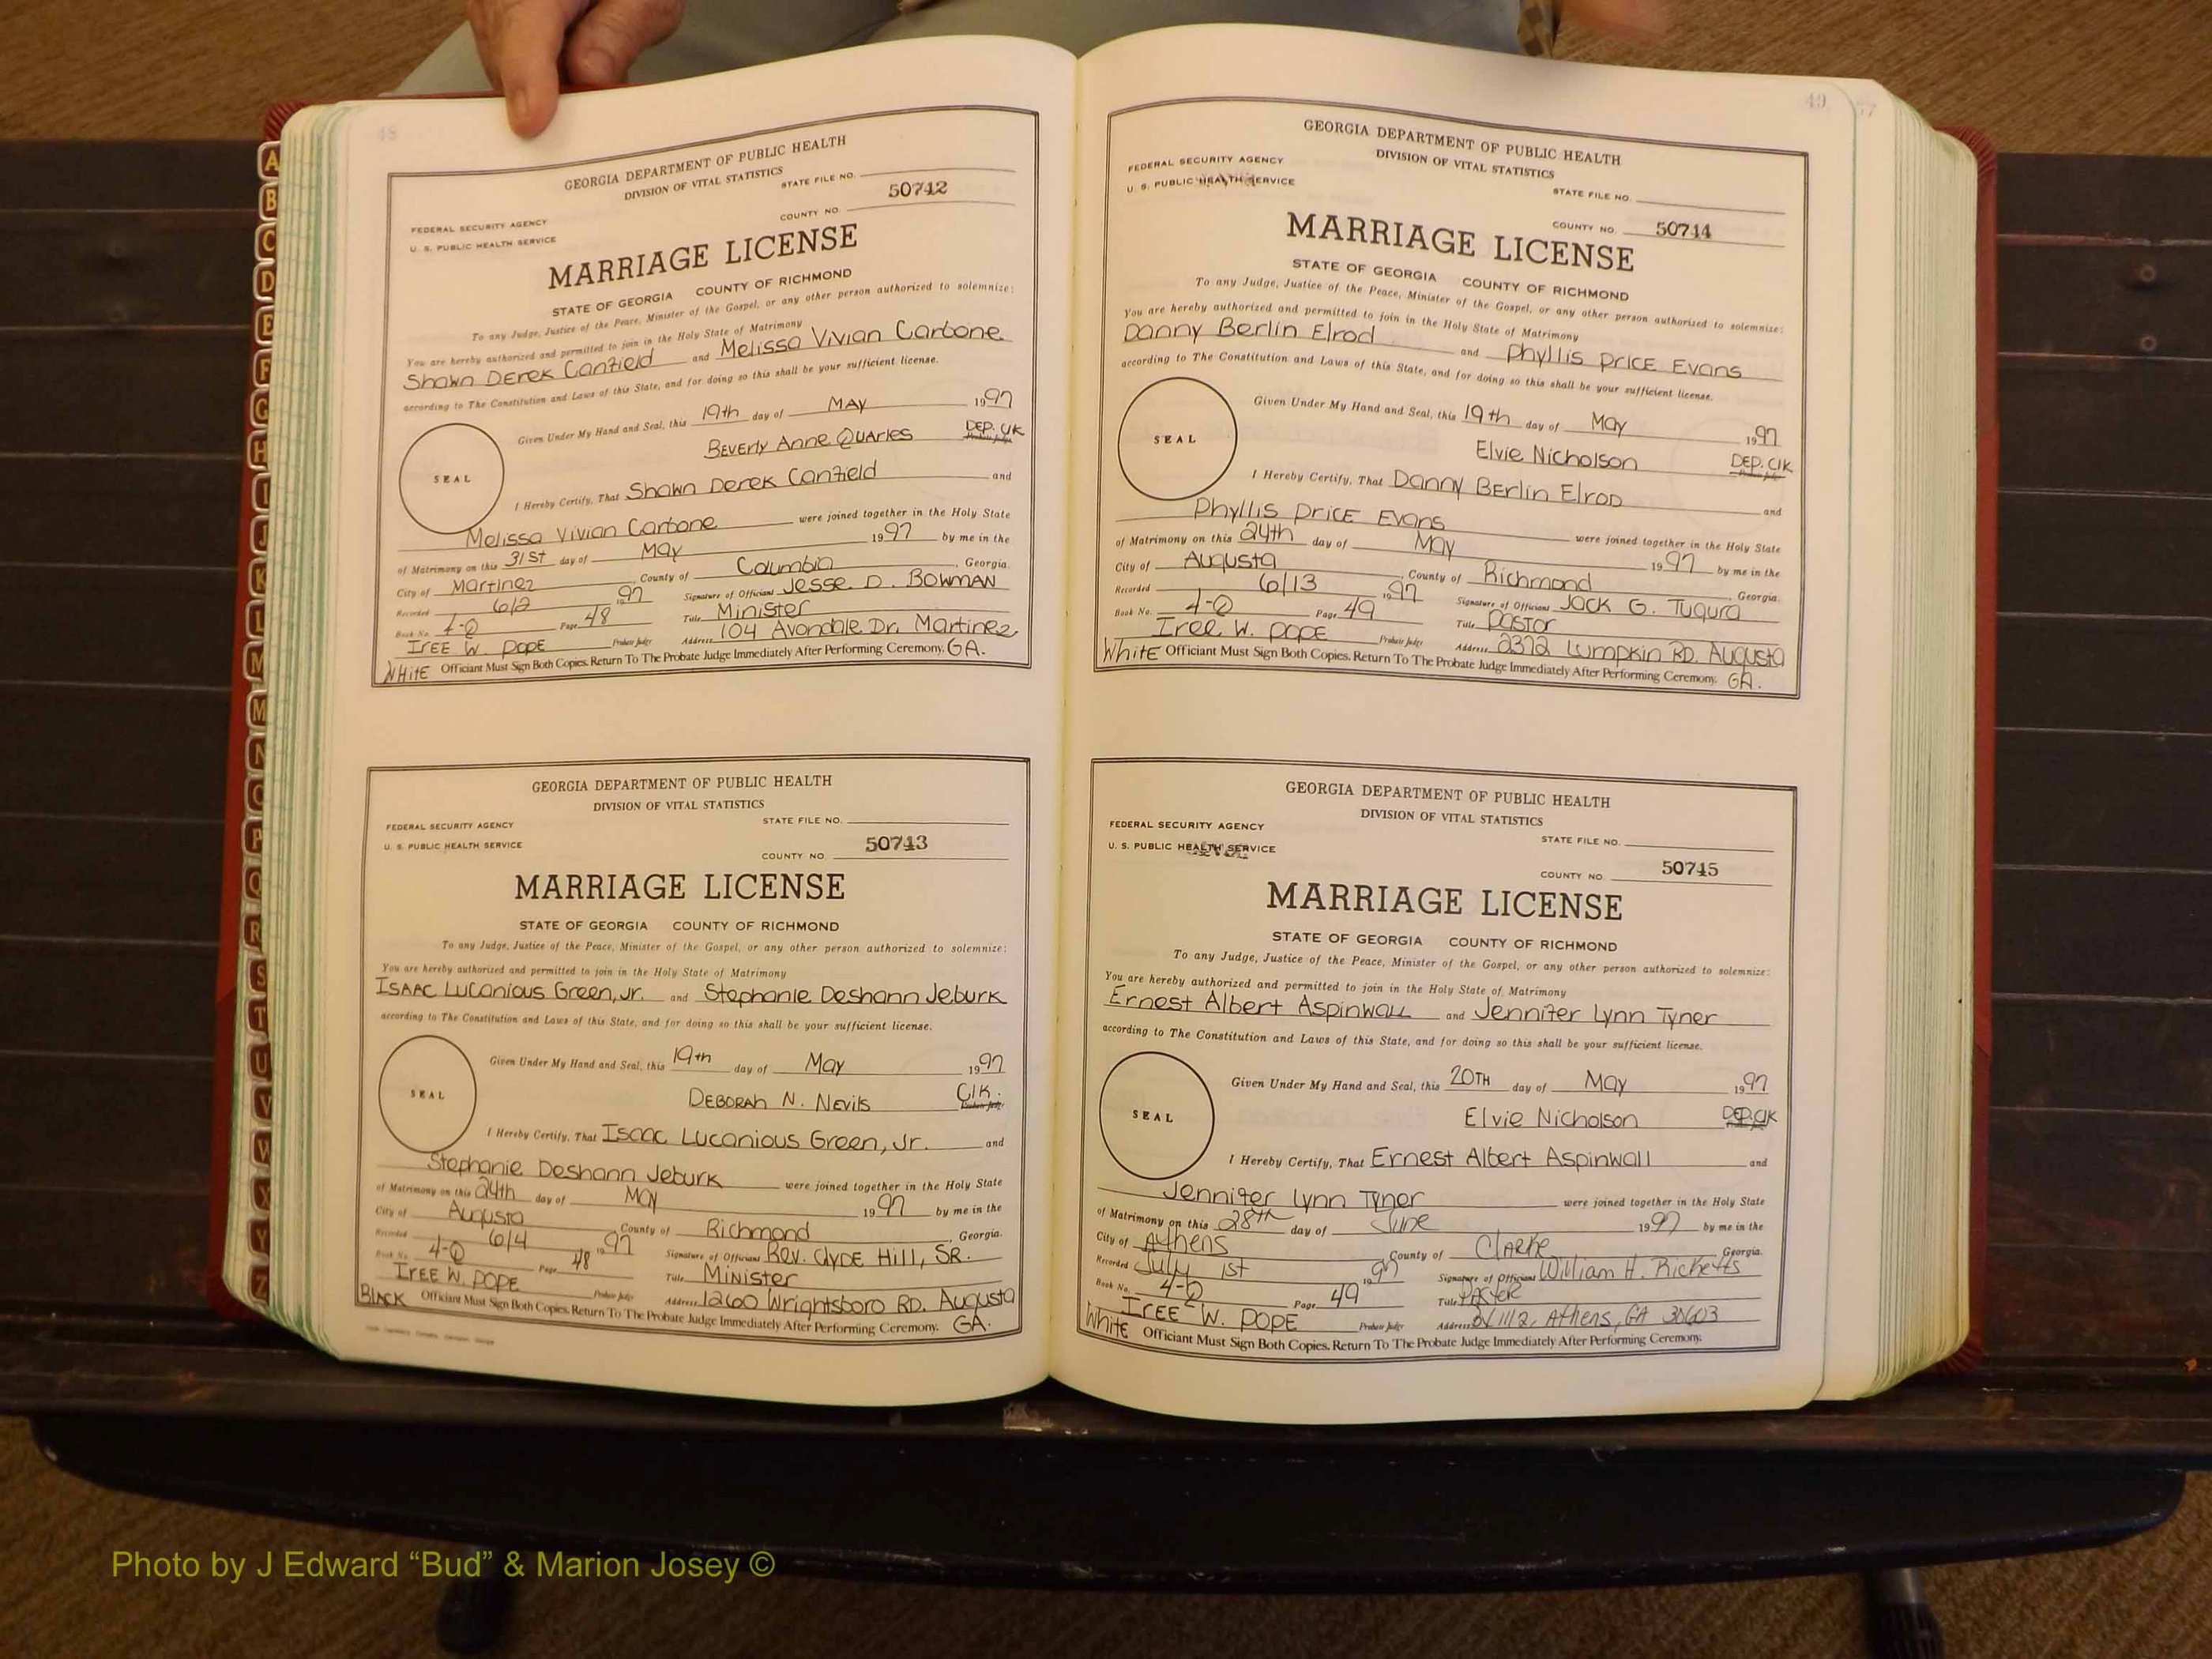 A
B
C
D
E
F
G
H
I
J
K
L
M
M
N
O
P
Q
R
S
T
U
V
W
X
Y
Z
48
GEORGIA DEPARTMENT OF PUBLIC HEALTH
DIVISION OF VITAL STATISTICS
STATE FILE NO.
50742
COUNTY NO.
FEDERAL SECURITY AGENCY
U. S. PUBLIC HEALTH SERVICE
MARRIAGE LICENSE
STATE OF GEORGIA COUNTY OF RICHMOND
To any Judge, Justice of the Peace, Minister of the Gospel, or any other person authorized to solemnize:
You are hereby authorized and permitted to join in the Holy State of Matrimony
Shawn Derek Canfield and Melissa Vivian Carbone
according to The Constitution and Laws of this State, and for doing so this shall be your sufficient license.
Given Under My Hand and Seal, this 19th day of MAY 1997
Beverly Anne Quarles DEP. Clk
SEAL
I Hereby Certify, That Shawn Derek Canfield and
Melissa Vivian Carbone were joined together in the Holy State
of Matrimony on this 31st day of May 1997 by me in the
City of Martinez County of Columbia, Georgia.
Recorded 6/2 1997 Signature of Official Jesse D. Bowman
Book No. 4-Q Page 48 Title Minister
Iree W. Pope Probate Judge Address 104 Avondale Dr. Martinez
White Officiant Must Sign Both Copies. Return To The Probate Judge Immediately After Performing Ceremony. GA.
GEORGIA DEPARTMENT OF PUBLIC HEALTH
DIVISION OF VITAL STATISTICS
FEDERAL SECURITY AGENCY STATE FILE NO.
U. S. PUBLIC HEALTH SERVICE COUNTY NO. 50743
MARRIAGE LICENSE
STATE OF GEORGIA COUNTY OF RICHMOND
To any Judge, Justice of the Peace, Minister of the Gospel, or any other person authorized to solemnize:
You are hereby authorized and permitted to join in the Holy State of Matrimony
Isaac Lucanious Green, Jr. and Stephanie Deshann Jeburk
according to The Constitution and Laws of this State, and for doing so this shall be your sufficient license.
Given Under My Hand and Seal, this 19th day of May 1997
Deborah N. Nevils Clk.
SEAL
I Hereby Certify, That Isaac Lucanious Green, Jr. and
Stephanie Deshann Jeburk were joined together in the Holy State
of Matrimony on this 24th day of May 1997 by me in the
City of Augusta County of Richmond, Georgia.
Recorded 6/4 1997 Signature of Official Rev. Clyde Hill, Sr.
Book No. 4-Q Page 48 Title Minister
Iree W. Pope Probate Judge Address 1260 Wrightsboro RD. Augusta
BLACK Officiant Must Sign Both Copies. Return To The Probate Judge Immediately After Performing Ceremony. GA.
49
57
GEORGIA DEPARTMENT OF PUBLIC HEALTH
DIVISION OF VITAL STATISTICS
FEDERAL SECURITY AGENCY
U. S. PUBLIC HEALTH SERVICE
STATE FILE NO.
COUNTY NO. 50744
MARRIAGE LICENSE
STATE OF GEORGIA COUNTY OF RICHMOND
To any Judge, Justice of the Peace, Minister of the Gospel, or any other person authorized to solemnize:
You are hereby authorized and permitted to join in the Holy State of Matrimony
Danny Berlin Elrod and Phyllis Price Evans
according to The Constitution and Laws of this State, and for doing so this shall be your sufficient license.
Given Under My Hand and Seal, this 19th day of May 1997
Elvie Nicholson DEP. Clk
SEAL
I Hereby Certify, That Danny Berlin Elrod and
Phyllis Price Evans were joined together in the Holy State
of Matrimony on this 24th day of May 1997 by me in the
City of Augusta County of Richmond, Georgia.
Recorded 6/13 1997 Signature of Official Jack G. Tugura
Book No. 4-Q Page 49 Title Pastor
Iree W. Pope Probate Judge Address 2372 Lumpkin RD. Augusta
White Officiant Must Sign Both Copies. Return To The Probate Judge Immediately After Performing Ceremony. GA.
GEORGIA DEPARTMENT OF PUBLIC HEALTH
DIVISION OF VITAL STATISTICS
FEDERAL SECURITY AGENCY STATE FILE NO.
U. S. PUBLIC HEALTH SERVICE
COUNTY NO. 50745
MARRIAGE LICENSE
STATE OF GEORGIA COUNTY OF RICHMOND
To any Judge, Justice of the Peace, Minister of the Gospel, or any other person authorized to solemnize:
You are hereby authorized and permitted to join in the Holy State of Matrimony
Ernest Albert Aspinwall and Jennifer Lynn Tyner
according to The Constitution and Laws of this State, and for doing so this shall be your sufficient license.
Given Under My Hand and Seal, this 20TH day of May 1997
Elvie Nicholson DEP. Clk
SEAL
I Hereby Certify, That Ernest Albert Aspinwall and
Jennifer Lynn Tyner were joined together in the Holy State
of Matrimony on this 28th day of June 1997 by me in the
City of Athens County of Clarke, Georgia.
Recorded July 1st 1997 Signature of Official William H. Ricketts
Book No. 4-Q Page 49 Title Pastor
Iree W. Pope Probate Judge Address Athens, GA 30603
White Officiant Must Sign Both Copies. Return To The Probate Judge Immediately After Performing Ceremony.
Photo by J Edward “Bud” & Marion Josey ©